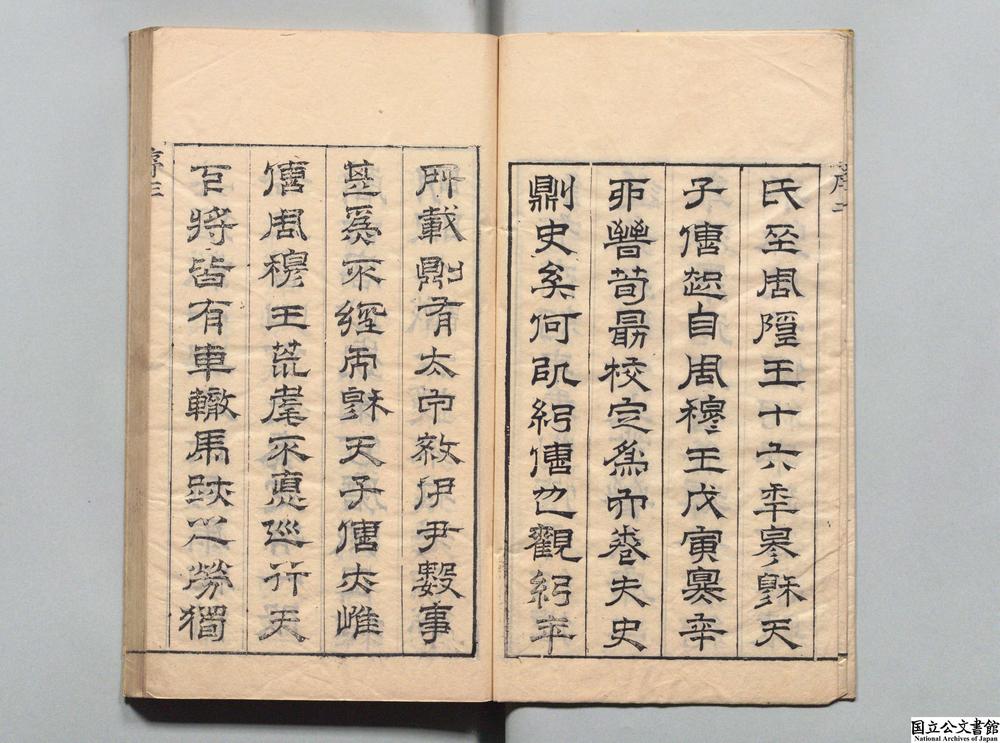 序二
氏至周隱王十六年穆天
子傳起自周穆王戊寅辛
卯晉荀勗校定為六卷夫史
則史矣何以紀傳也觀紀年
序三
所載則有太甲殺伊尹數事
甚為不經而穆天子傳大
傳周穆王荒耄不悳巡行天
下將皆有車轍馬跡之勞獨
国立公文書館
National Archives of Japan